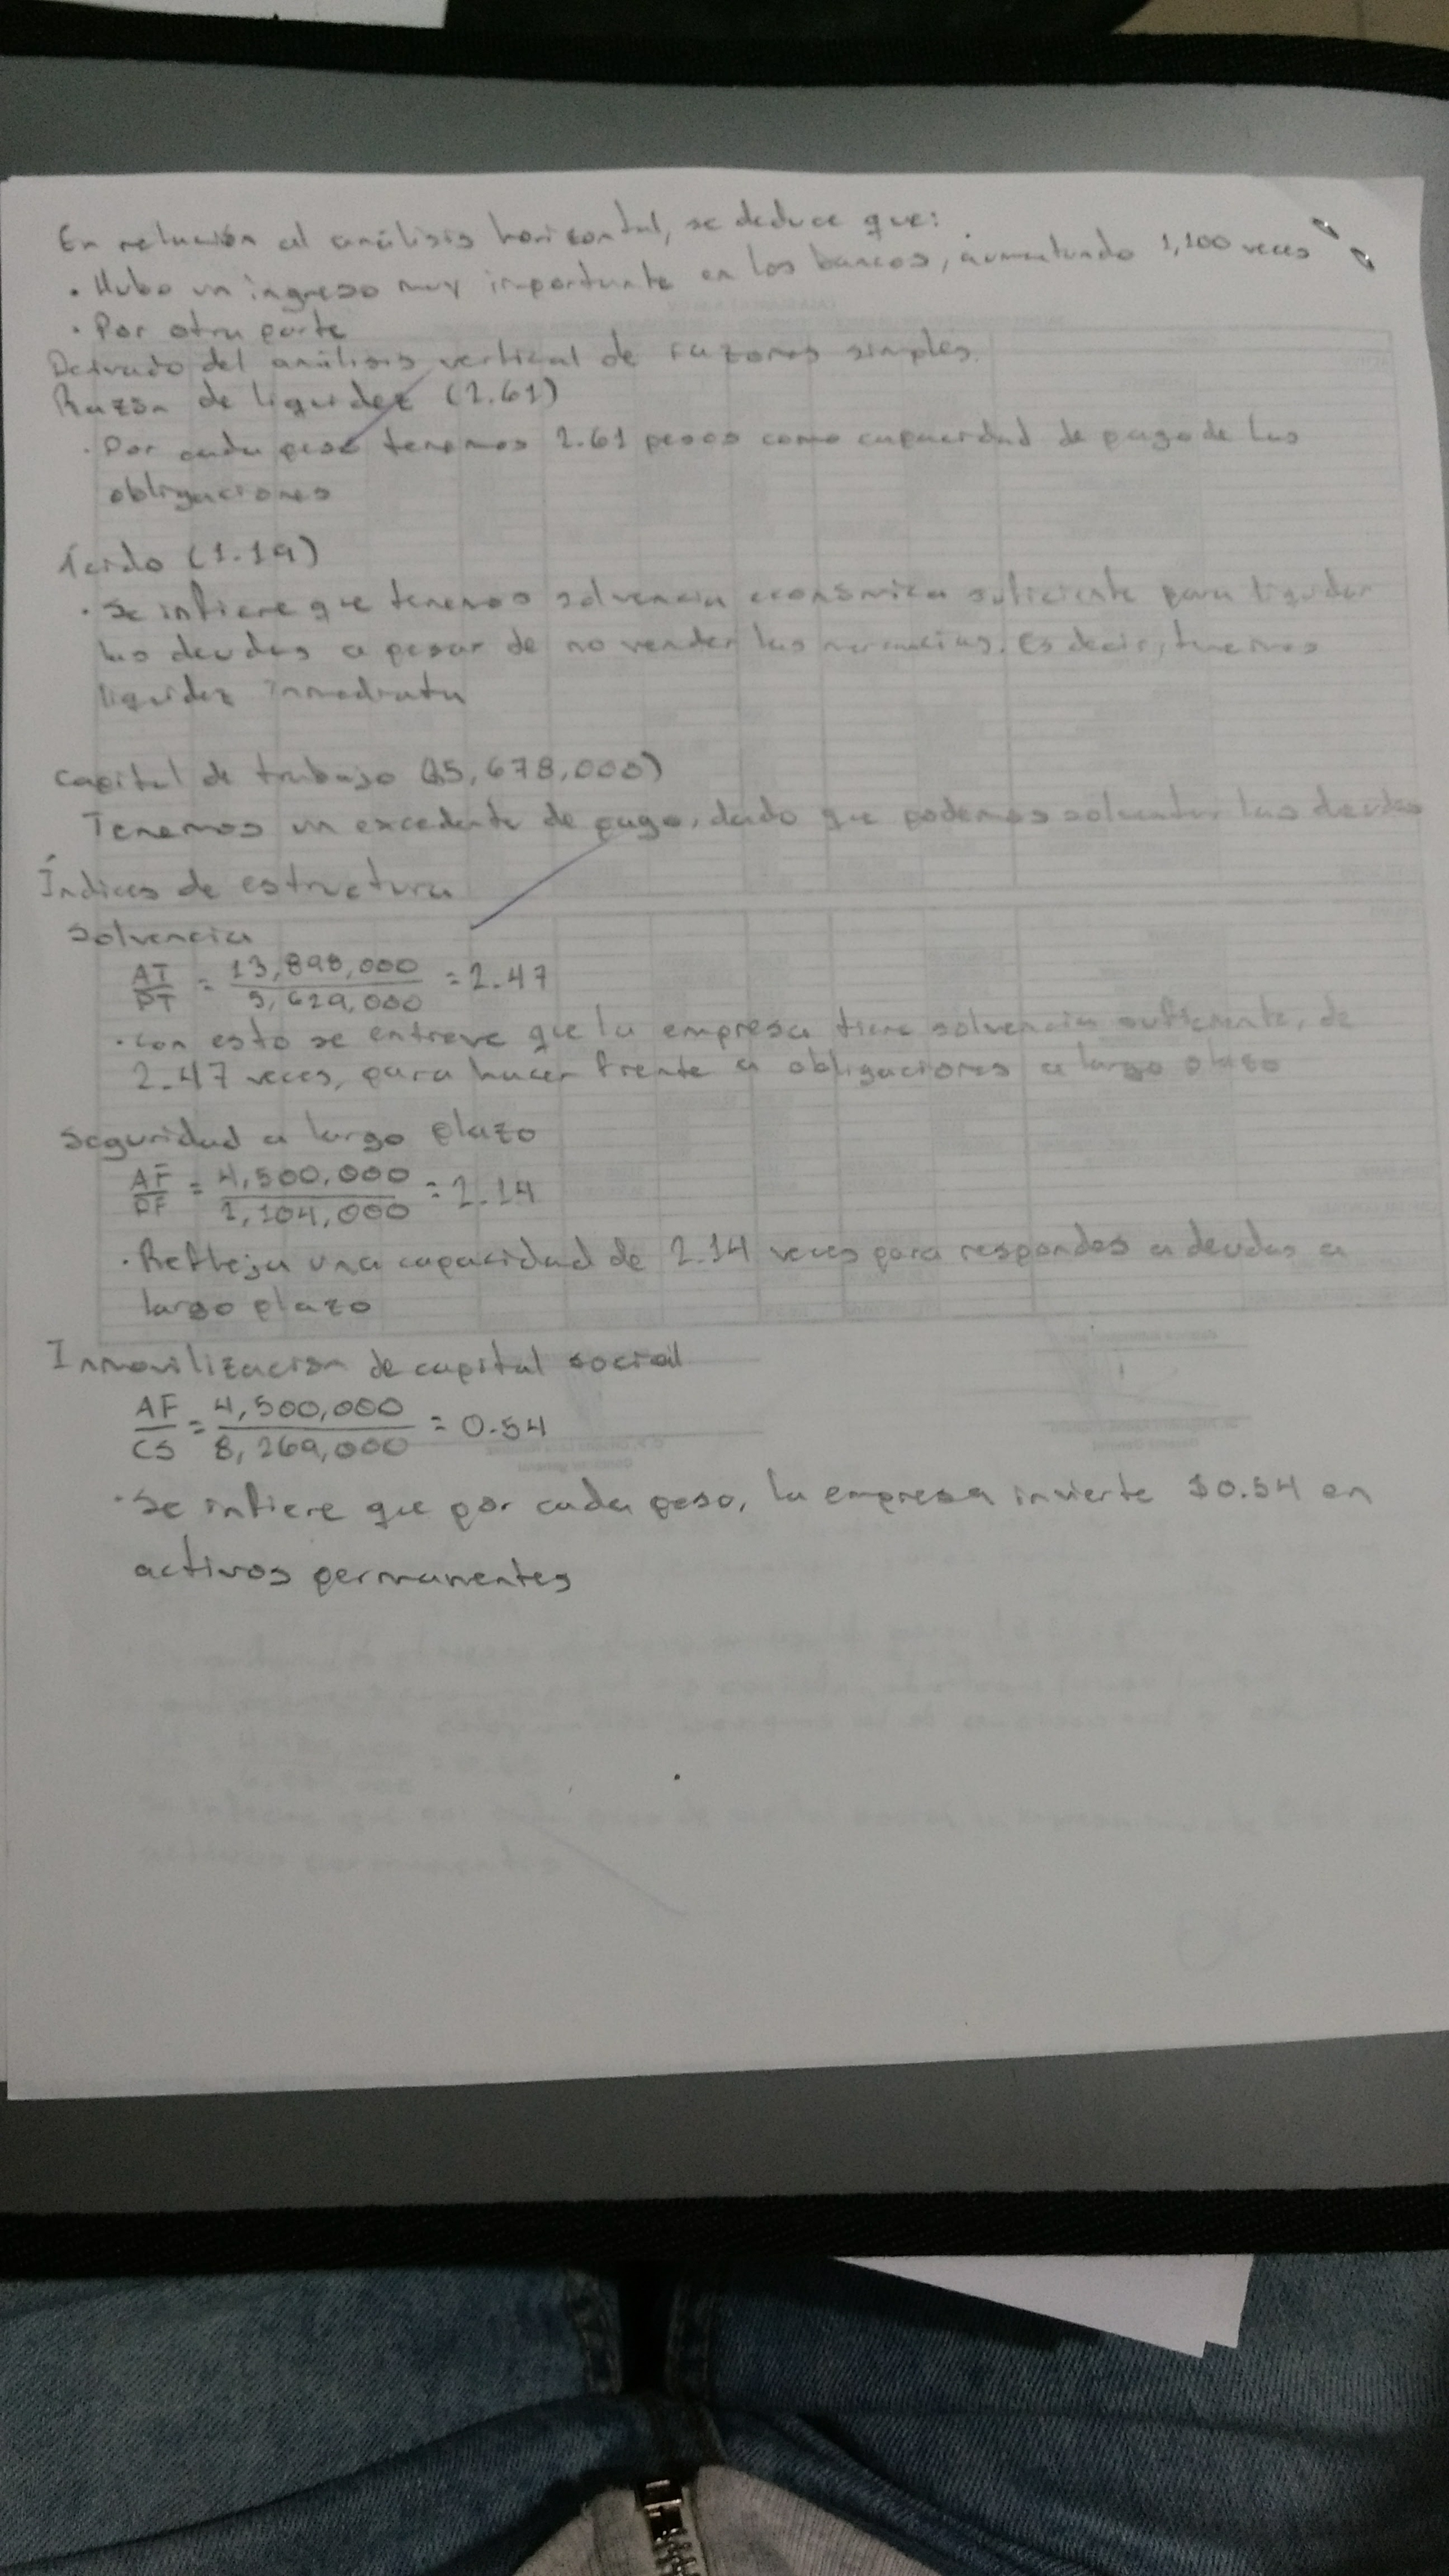 En relación al análisis horizontal, se deduce que:
• Hubo un ingreso muy importante en los bancos, aumentando 1,100 veces
• Por otra parte
Derivado del análisis vertical de razones simples.
Razón de liquidez (2.61)
• Por cada peso tenemos 2.61 pesos como capacidad de pago de las
obligaciones
Ácido (1.19)
• Se infiere que tenemos solvencia económica suficiente para liquidar
las deudas a pesar de no vender las mercancías. Es decir, tenemos
liquidez inmediata
Capital de trabajo ($5,678,000)
Tenemos un excedente de pago, dado que podemos solventar las deudas
Índices de estructura
Solvencia
AT/PT = 13,898,000/5,629,000 = 2.47
• Con esto se entreve que la empresa tiene solvencia suficiente, de
2.47 veces, para hacer frente a obligaciones a largo plazo
Seguridad a largo plazo
AF/PF = 4,500,000/2,104,000 = 2.14
• Refleja una capacidad de 2.14 veces para responder a deudas a
largo plazo
Inmovilización de capital social
AF/CS = 4,500,000/8,269,000 = 0.54
• Se infiere que por cada peso, la empresa invierte $0.54 en
activos permanentes